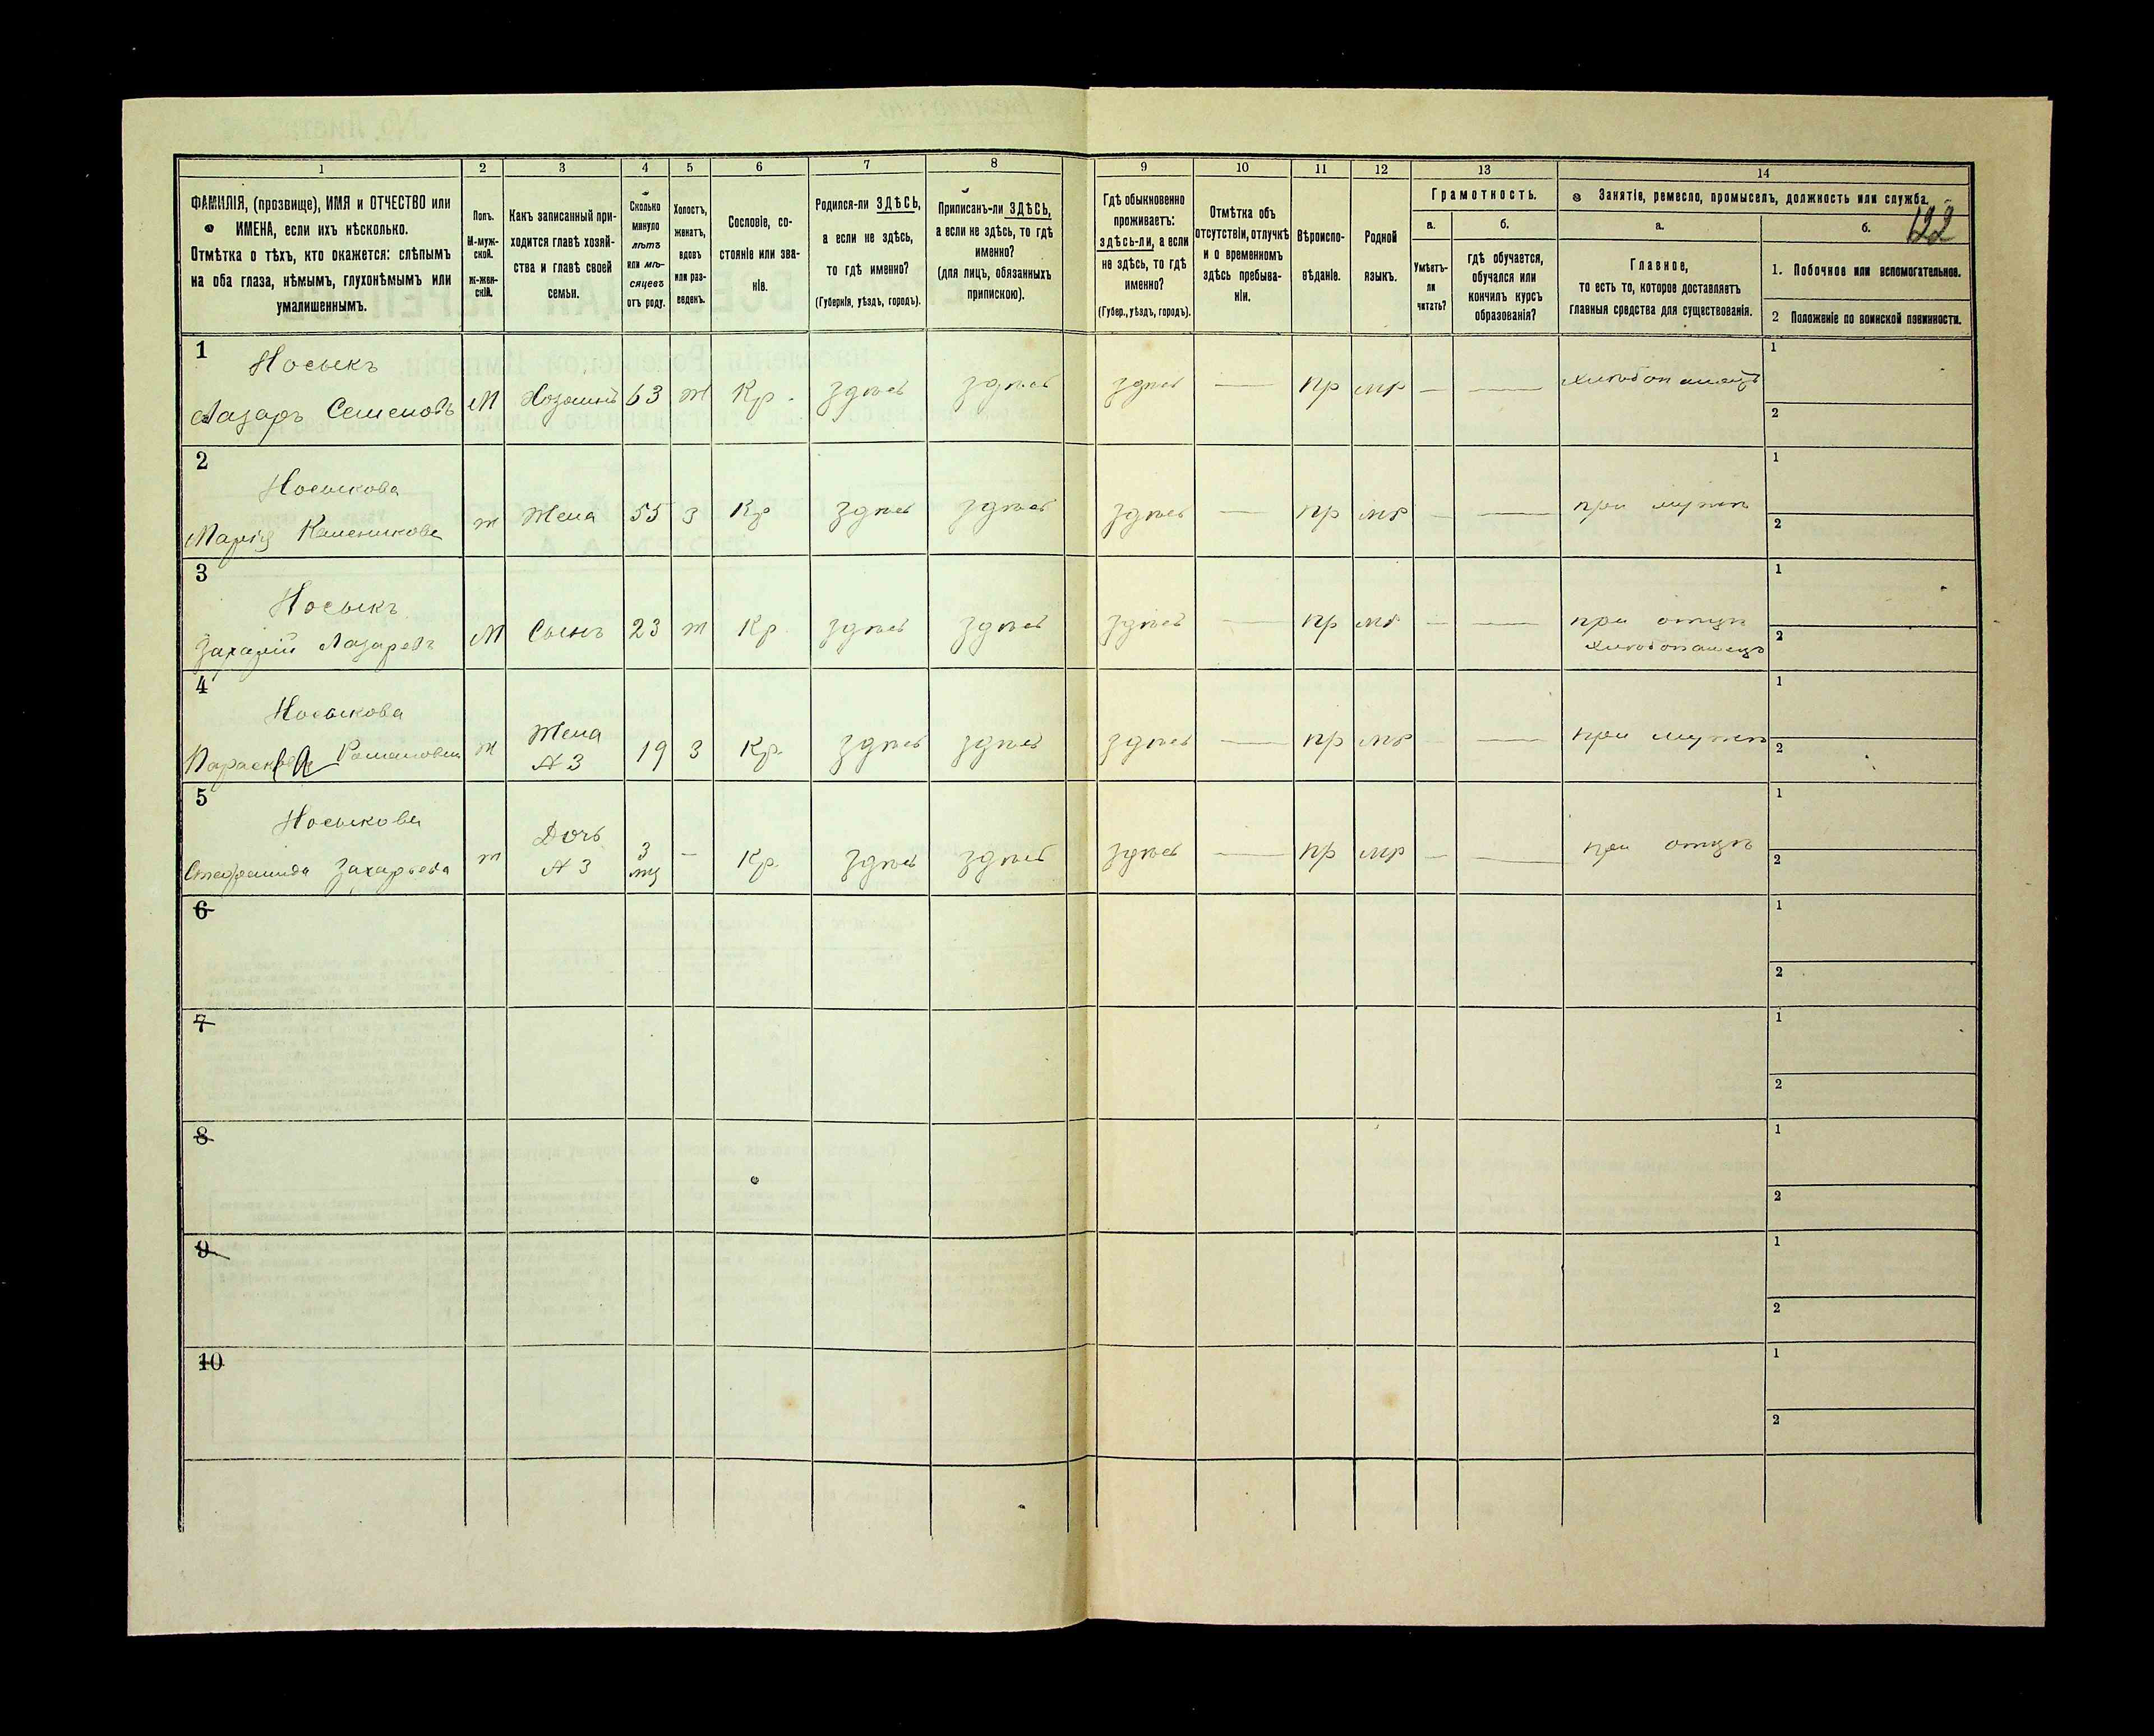 1 2 3 4 5 6 7 8 9 10 11 12 13 14
ФАМИЛІЯ, (прозвище), ИМЯ и ОТЧЕСТВО или
ИМЕНА, если ихъ нѣсколько.
Отмѣтка о тѣхъ, кто окажется: слѣпымъ
на оба глаза, нѣмымъ, глухонѣмымъ или
умалишеннымъ.
Полъ.
М-муж-
ской.
Ж-жен-
скій.
Какъ записанный при-
ходится главѣ хозяй-
ства и главѣ своей
семьи.
Сколько
минуло
лѣтъ
или мѣ-
сяцевъ
отъ роду.
Холостъ,
женатъ,
вдовъ
или раз-
веденъ.
Сословіе, со-
стояніе или зва-
ніе.
Родился-ли ЗДѢСЬ,
а если не здѣсь,
то гдѣ именно?
(Губернія, уѣздъ, городъ).
Приписанъ-ли ЗДѢСЬ,
а если не здѣсь, то гдѣ
именно?
(для лицъ, обязанныхъ
припискою).
Гдѣ обыкновенно
проживаетъ:
здѣсь-ли, а если
не здѣсь, то гдѣ
именно?
(Губер., уѣздъ, городъ).
Отмѣтка объ
отсутствіи, отлучкѣ
и о временномъ
здѣсь пребыва-
ніи.
Вѣроиспо-
вѣданіе.
Родной
языкъ.
Грамотность.
а.
Умѣетъ-
ли
читать?
б.
гдѣ обучается,
обучался или
кончилъ курсъ
образованія?
Занятіе, ремесло, промыселъ, должность или служба.
122
а.
Главное,
то есть то, которое доставляетъ
главныя средства для существованія.
б.
1. Побочное или вспомогательное.
2 Положеніе по воинской повинности.
1
Носыкъ
Лазаръ Семеновъ М Хозяинъ 63 ж Кр. здѣсь здѣсь здѣсь — пр мр — — хлѣбопашецъ
1
2
2
Носыкова
Марія ж Жена 55 з Кр здѣсь здѣсь здѣсь — пр мр — — при мужѣ
1
2
3
Носыкъ
Захарій Лазаревъ М Сынъ 23 ж Кр. здѣсь здѣсь здѣсь — пр мр — — при отцѣ
хлѣбопашецъ
1
2
4
Носыкова
Параскева Романовна ж Жена
№ 3 19 з Кр. здѣсь здѣсь здѣсь — пр мр — — при мужѣ
1
2
5
Носыкова
Стефанида Захарьева ж Дочь
№ 3 3
мц — Кр. здѣсь здѣсь здѣсь — пр мр — — при отцѣ
1
2
6
1
2
7
1
2
8
1
2
9
1
2
10
1
2